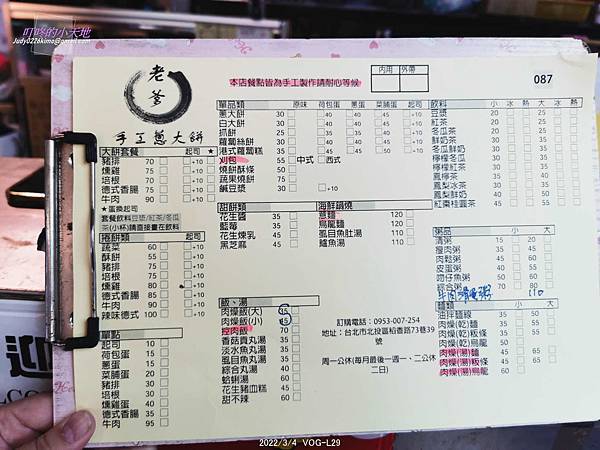 叮咚的小天地
Judy0226kimo@gmail.com
老爹
手工蔥大餅
本店餐點皆為手工製作請耐心等候
內用 外帶
087
大餅套餐 起司 ★
豬排 70 +10
燻雞 75 +10
培根 70 +10
德式香腸 75 +10
牛肉 90 +10
★蛋換起司
套餐飲料豆漿/紅茶/冬瓜
茶(小杯)請直接畫在飲料
捲餅類
蔬菜 60 +10
酥餅 55 +10
豬排 75 +10
培根 75 +10
燻雞 80 +10
德式香腸 85 +10
牛肉 90 +10
辣味德式 100 +10
單點
起司 10
荷包蛋 15
蔥蛋 20
菜脯蛋 20
豬排 30
培根 30
燻雞蛋 40
德式香腸 35
牛肉 95
單品類 原味 荷包蛋 蔥蛋 菜脯蛋 起司
蔥大餅 30 40 40 45 +10
白大餅 30 40 40 45 +10
抓餅 25 35 +10
蘿蔔絲餅 30 40 40 45 +10
港式蘿蔔糕 35 45 45 50 +10
刈包 55 中式 西式
燒餅酥條 50
蔬果燒餅 60
鹹豆漿 30 +10
甜餅類
花生醬 35
藍莓 35
花生煉乳 45
黑芝麻 45
海鮮鍋燒
意麵 120
烏龍麵 120
虱目魚肚湯 110
鱸魚湯 110
飯、湯
肉燥飯(大) 35
肉燥飯(小) 45
控肉飯 70
香菇貢丸湯 35
淡水魚丸湯 35
虱目魚丸湯 35
綜合丸湯 40
蛤蜊湯 60
花生豬血糕 45
甜不辣 60
訂購電話：0953-007-254
地址：台北市北投區稻香路73巷39
號
周一公休(每月最後一週一、二公休
二日)
飲料 小 冰 熱 大 冰 熱
豆漿 20 25
紅茶 20 25
冬瓜茶 20 25
鮮奶茶 30 45
冬瓜鮮奶 30 45
檸檬冬瓜 30 45
檸檬紅茶 30 45
夏檸茶 30 45
鳳梨冰茶 30 45
鳳梨鮮奶 40 50
紅棗桂圓茶 45 55
粥品 小 大
清粥 15 20
瘦肉粥 35 50
肉鬆粥 45 60
皮蛋粥 40 55
吻仔魚粥 50 65
綜合粥 70 80
牛肉滑蛋粥 110
麵類 小 大
油拌麵線 35 50
肉燥(乾)麵 35 50
肉燥(乾)粄條 35 55
肉燥(乾)烏龍 50
肉燥(湯)麵 45 60
肉燥(湯)粄條 45 65
肉燥(湯)烏龍 60
2022/3/4 VOG-L29